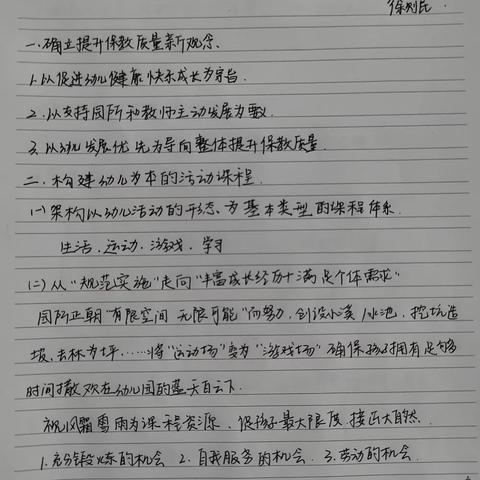 徐则民
一.确立提升保教质量新观念.
1.以促进幼儿健康快乐成长为宗旨.
2.以支持园所和教师主动发展为要.
3.以幼儿发展优先为导向整体提升保教质量.
二.构建幼儿为本的活动课程.
(一)架构以幼儿活动的形态.为基本类型的课程体系.
生活.运动.游戏.学习
(二)从"规范实施"走向"丰富成长经历+满足个体需求"
园所正朝"有限空间 无限可能"而努力,创设小溪 水池,挖坑造
坡,去林为坪……将"运动场"变为"游戏场"确保孩子拥有足够
时间撒欢在幼儿园的蓝天白云下.
视风霜雪雨为课程资源.促孩子最大限度.接近大自然.
1.充分锻炼的机会 2.自我服务的机会.3.劳动的机会.